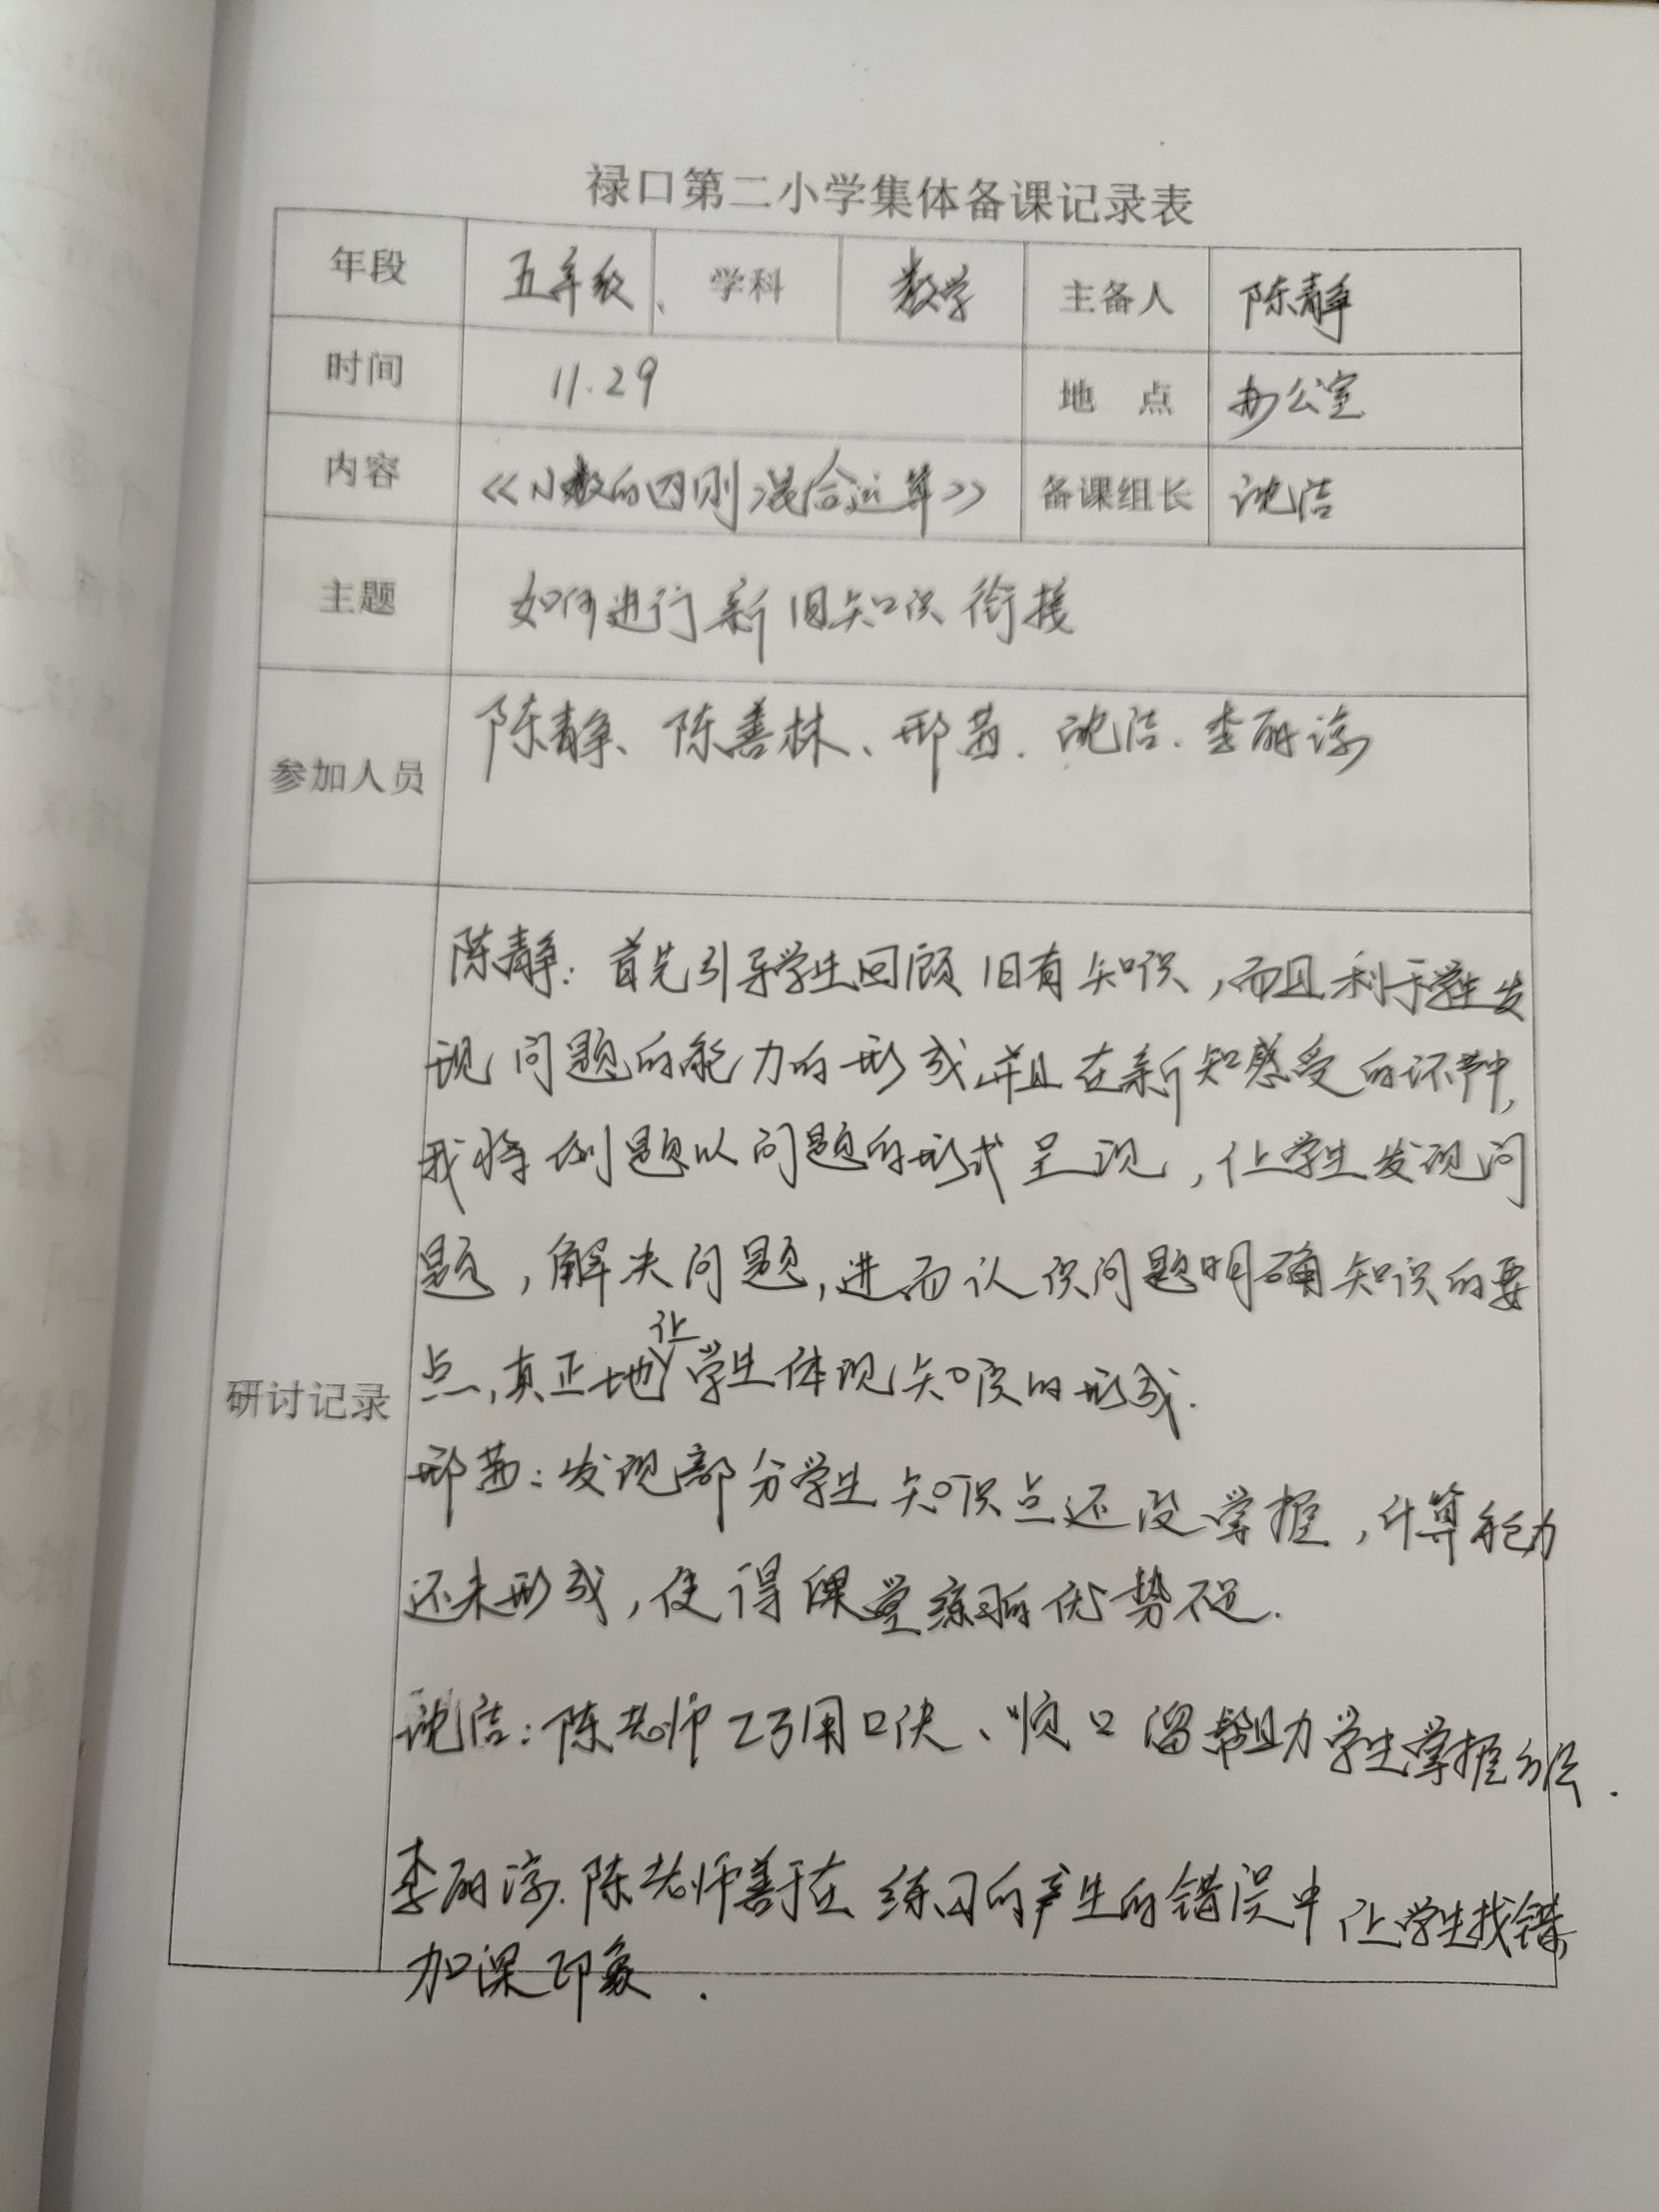 禄口第二小学集体备课记录表
年段 五年级、 学科 数学 主备人 陈静
时间 11.29 地 点 办公室
内容 《小数的四则混合运算》 备课组长 沈洁
主题 如何进行新旧知识衔接
参加人员 陈静、陈善林、邢茜.沈洁.李丽
研讨记录
陈静:首先引导学生回顾旧有知识,而且利于学生发
现问题的能力的形成并且在新知感受的环节中,
我将例题以问题的形式呈现,让学生发现问
题,解决问题,进而认识问题明确知识的要
点,真正地让学生体现知识的形成.
邢茜:发现部分学生知识点还没掌握,计算能力
还未形成,使得课堂练习的优势不足.
沈洁:陈老师巧用口诀、顺口溜帮助学生掌握方法.
李丽.陈老师善于在练习的产生的错误中让学生找错,
加深印象.